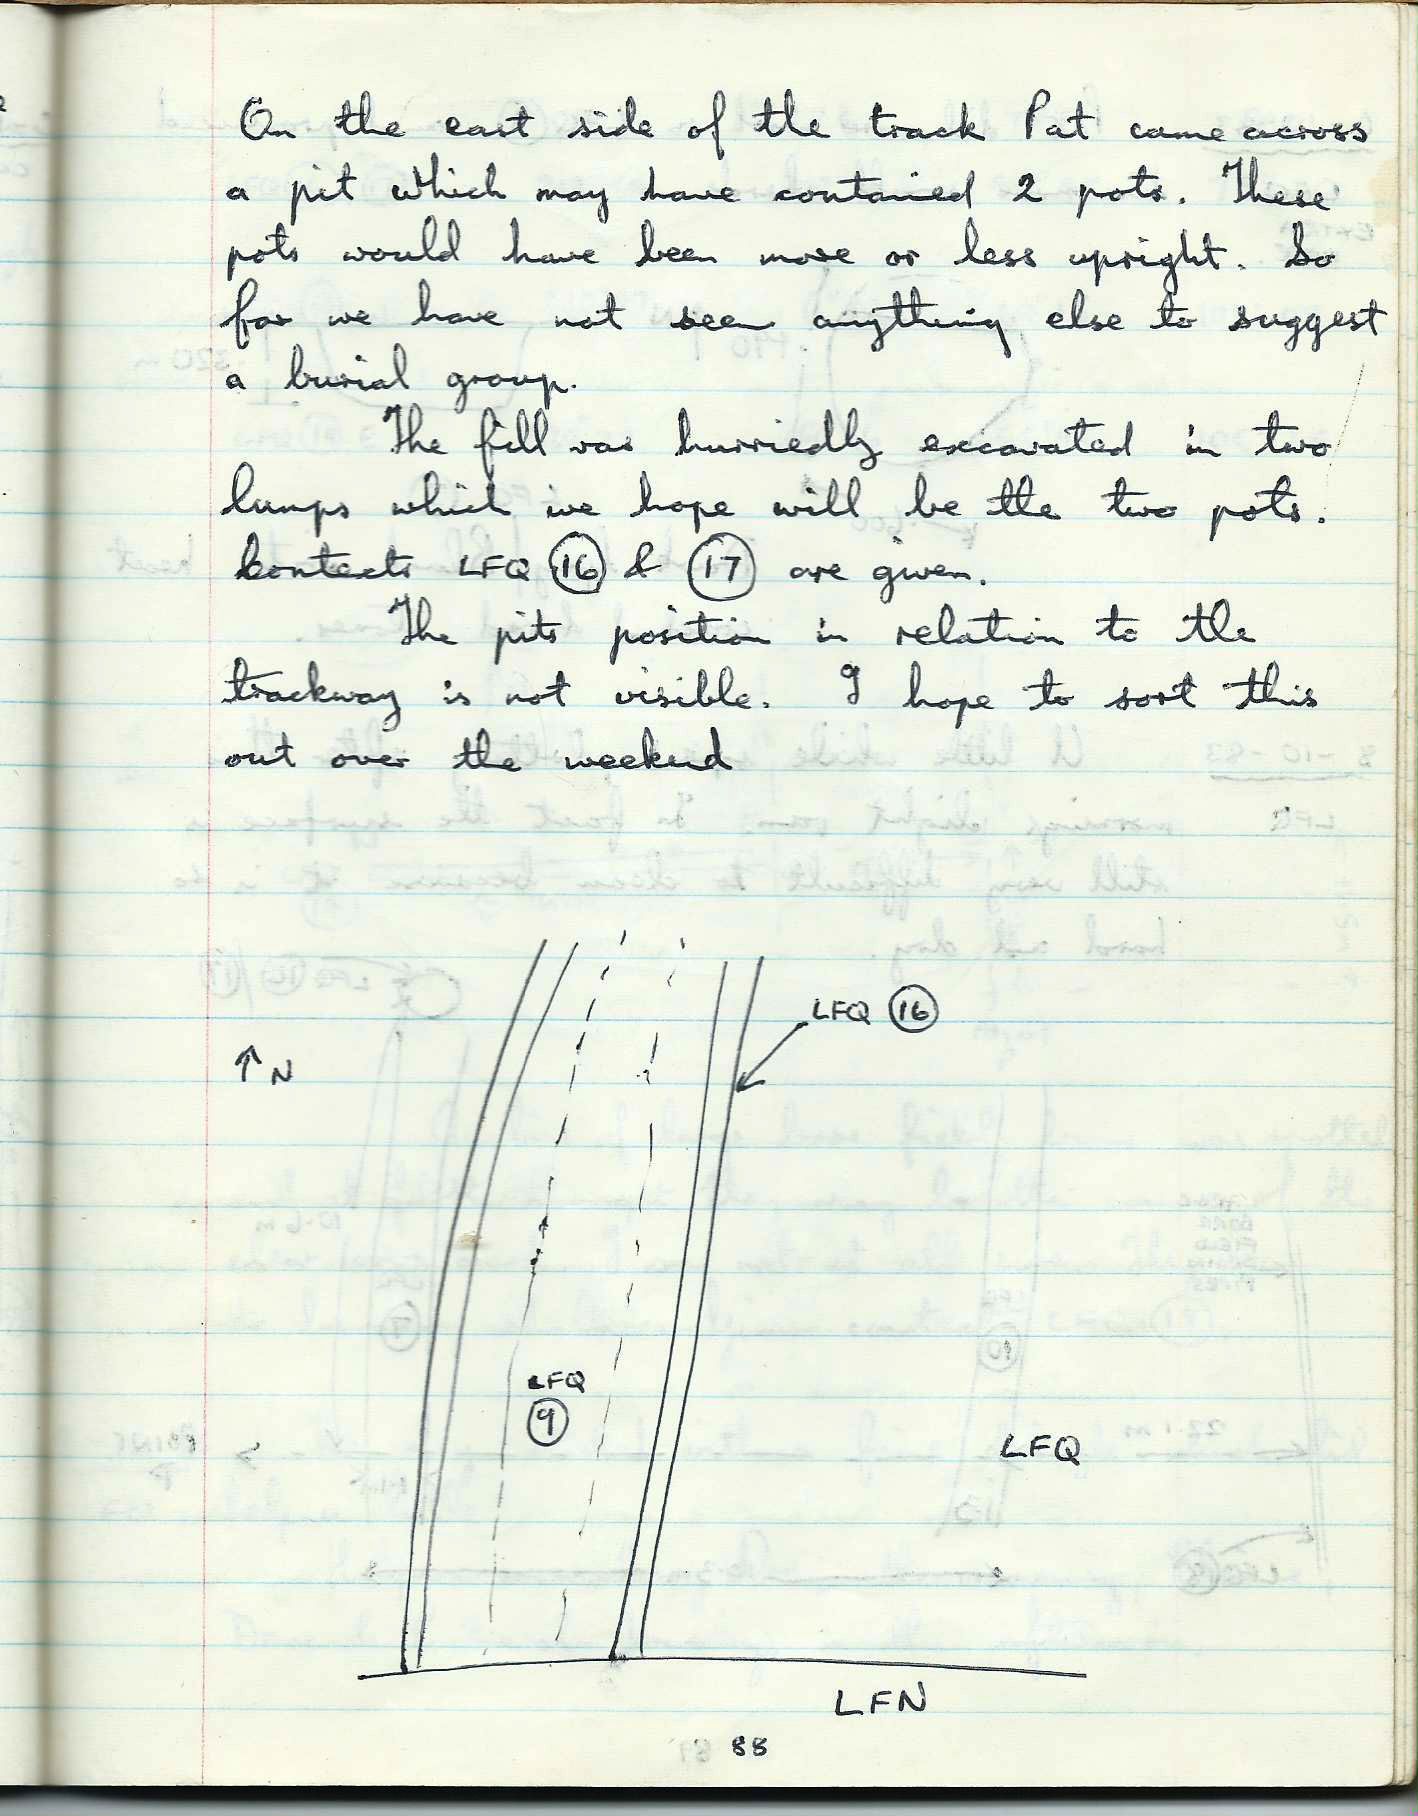 On the east side of the track Pat came across
a pit which may have contained 2 pots. These
pots would have been more or less upright. So
far we have not seen anything else to suggest
a burial group.
The fill was hurriedly excavated in two
lumps which we hope will be the two pots.
Contexts LFQ 16 & 17 are given.
The pits position in relation to the
trackway is not visible. I hope to sort this
out over the weekend
LFQ 16
↑ N
LFQ
9
LFQ
LFN
88